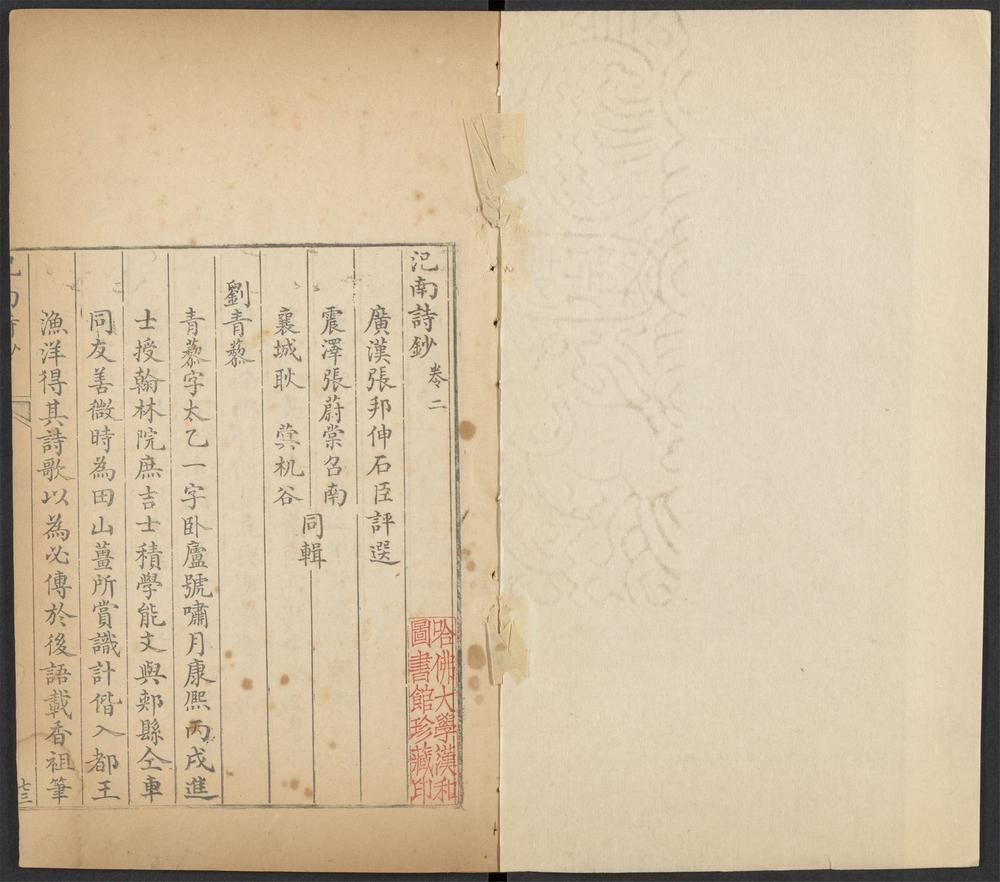 汜南詩鈔 卷二
廣漢張邦伸石臣評選
震澤張蔚棠召南
襄城耿 蓂机谷
同輯
劉青藜
青藜字太乙一字卧廬號嘯月康熙丙戌進
士授翰林院庶吉士積學能文與郟縣仝車
同友善微時為田山薑所賞識計偕入都王
漁洋得其詩歌以為必傳於後語載香祖筆
七三
哈佛大學漢和
圖書館珍藏印